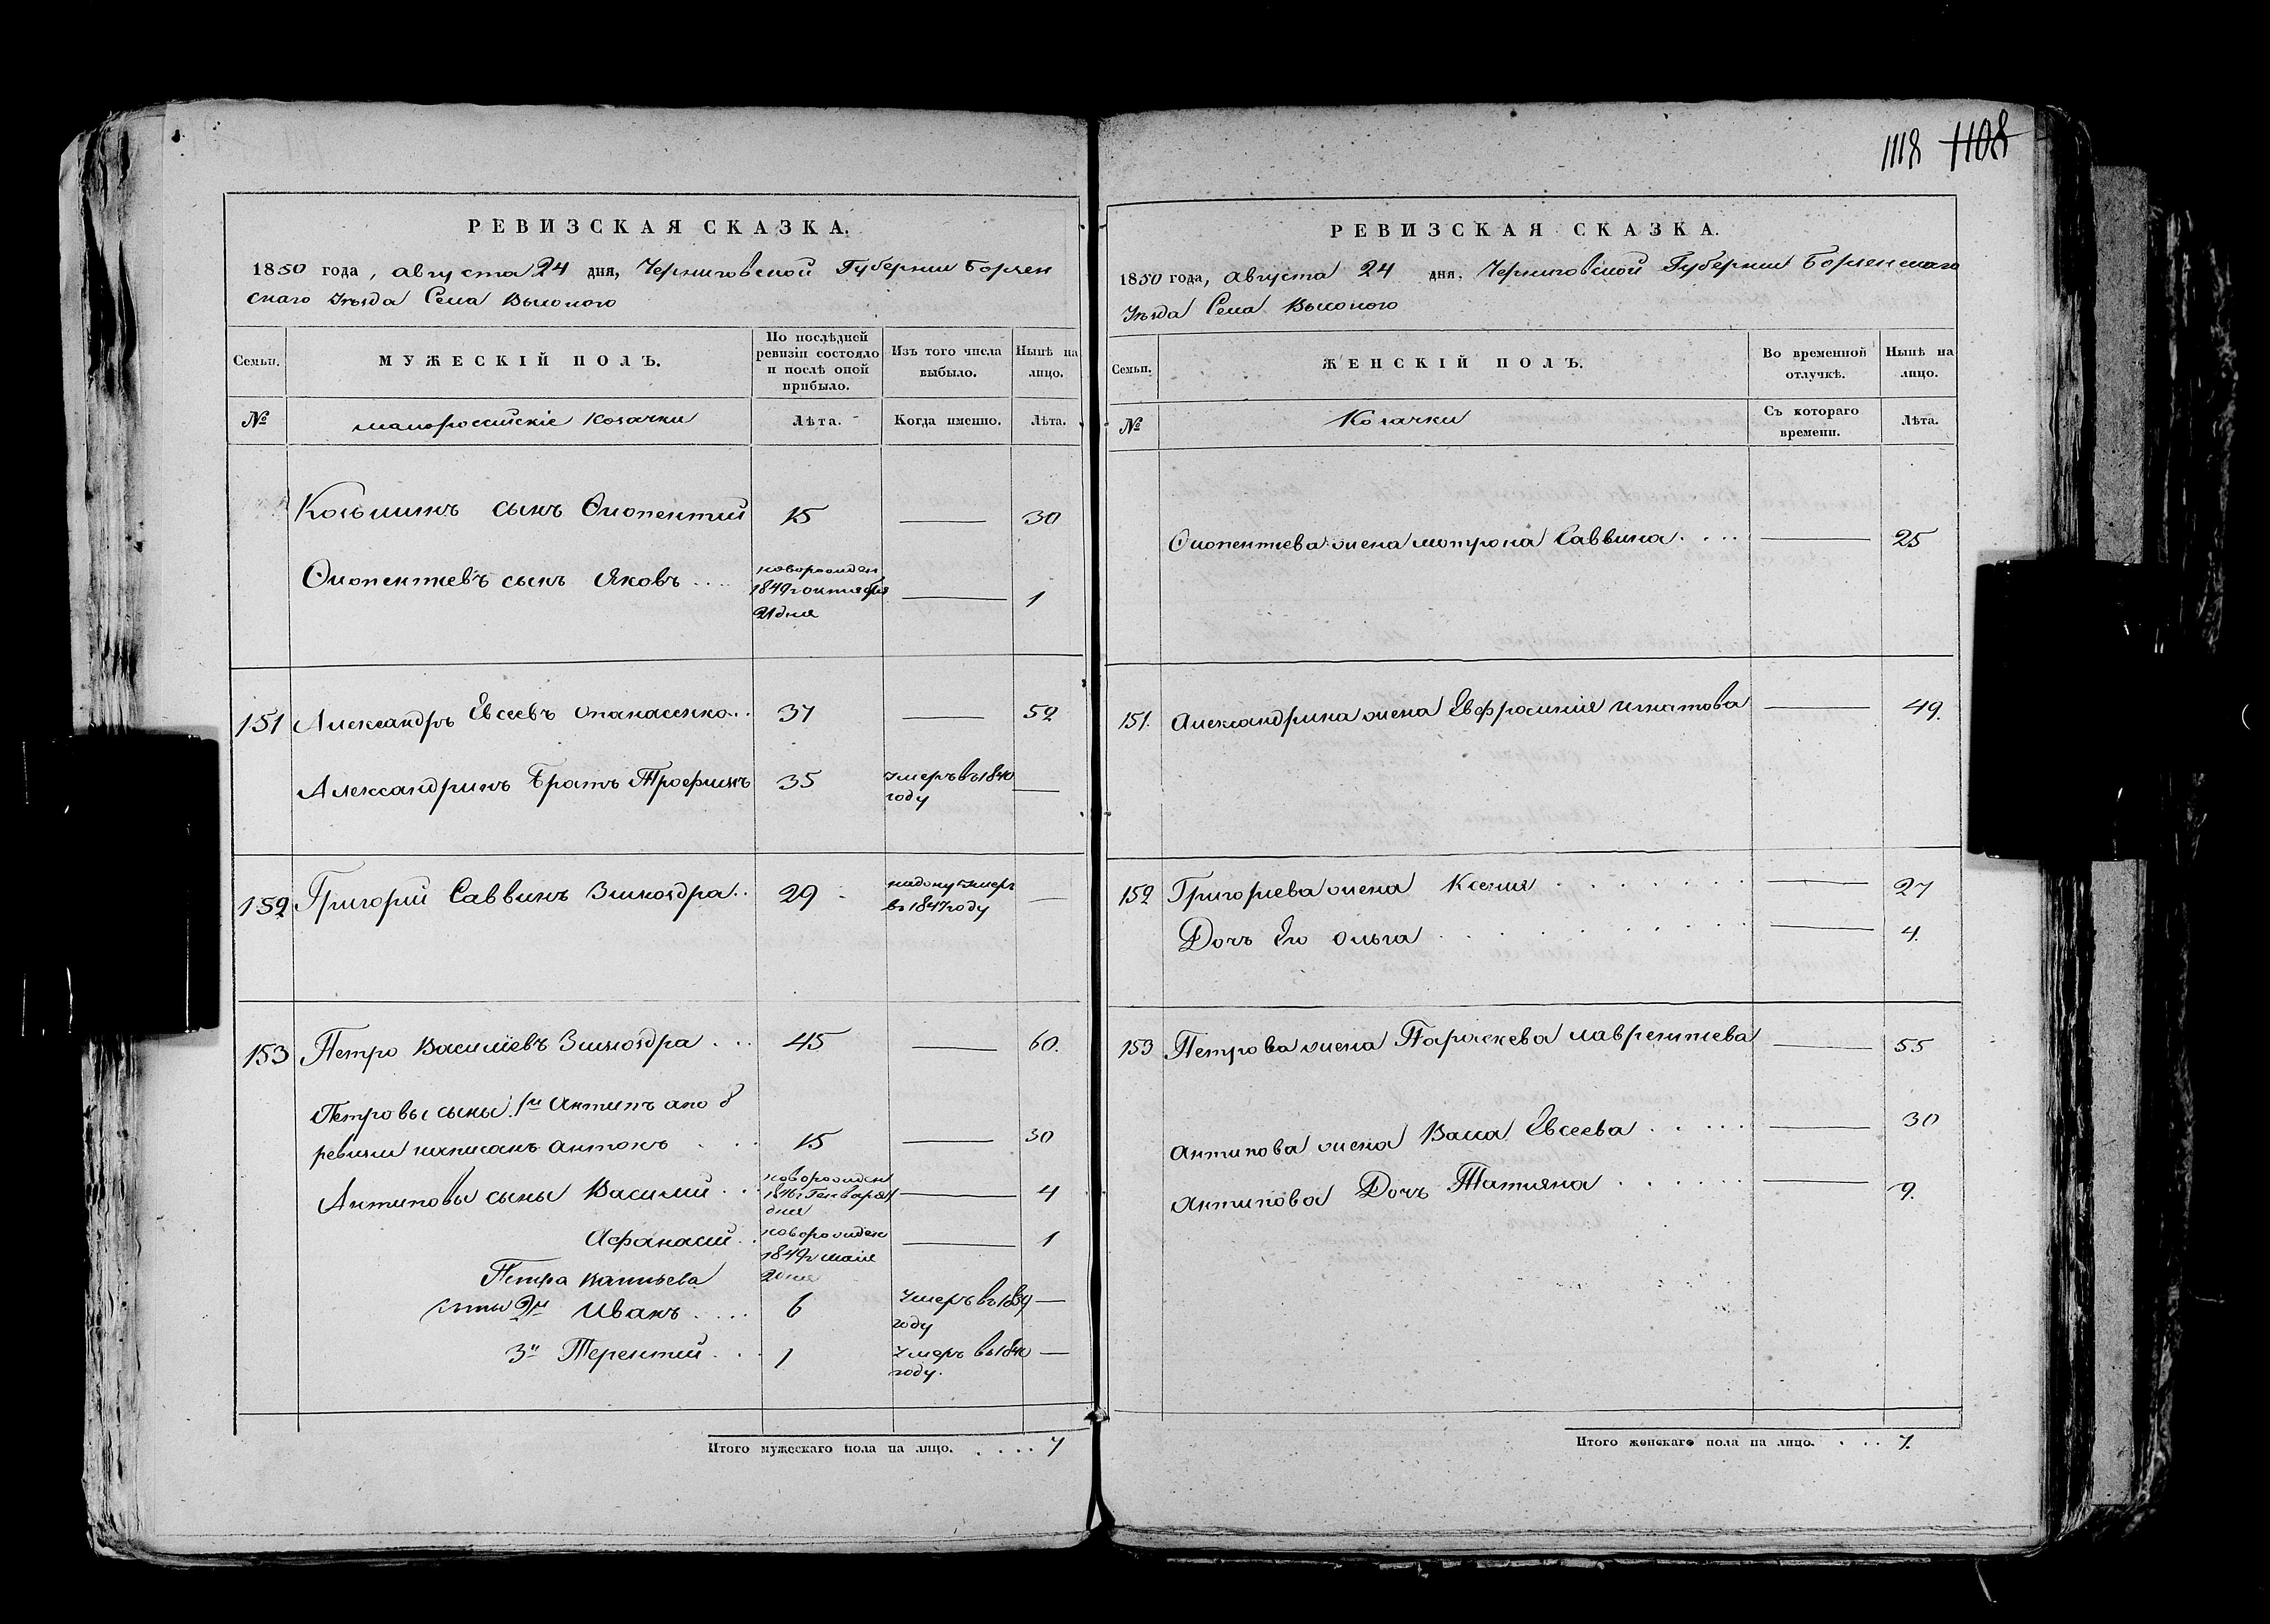 1118 1108
РЕВИЗСКАЯ СКАЗКА.
1850 года, августа 24 дня, Черниговской Губернии Борзен
скаго Уѣзда Села Высокого
Семьи.
МУЖЕСКІЙ ПОЛЪ.
По послѣдней
ревизіи состояло
и послѣ оной
прибыло.
Изъ того числа
выбыло.
Нынѣ на
лицо.
№
малороссийскіе Козачки
Лѣта.
Когда именно.
Лѣта.
Козьминъ сынъ 15 — 30
сынъ Яковъ .... новорожден
1849 г октября
21 дня — 1
151 Александръ Евсеевъ Опанасенко.. 37 — 52
Александринъ Братъ Трофимъ 35 умеръ въ 1840
году —
152 Григорий Саввинъ .. 29 умеръ
въ 1847 году —
153 Петро Василіевъ ... 45 — 60.
Петровы сыны 1й Антипъ а по 8
ревизии написанъ Антонъ ... 15 — 30
Антиповы сыны Василий .. новорожден
1846 г Генваря
дня — 4
Афанасий .. новорожден
1849 г маія
дня — 1
Петра
2й Иванъ .... 6 Умеръ въ 1839
году —
3й Терентий ... 1 Умеръ въ 1840
году. —
Итого мужескаго пола на лицо. .... 7
РЕВИЗСКАЯ СКАЗКА.
1850 года, августа 24 дня, Черниговской Губернии Борзенскаго
Уѣзда Села Высокого
Семьи.
ЖЕНСКІЙ ПОЛЪ.
Во временной
отлучкѣ.
Нынѣ на
лицо.
№
Козачки
Съ котораго
времени.
Лѣта.
жена мотрона Саввина .... — 25
151. Александрина жена Евфросиния игнатова — 49.
152 Григориева жена Ксения — 27
Дочь Его Ольга — 4.
153 Петрова жена Параскева лаврентиева — 55
Антипова жена Васса Евсеева ..... — 30
Антипова Дочь Татияна ...... — 9.
Итого женскаго пола на лицо. .... 7.